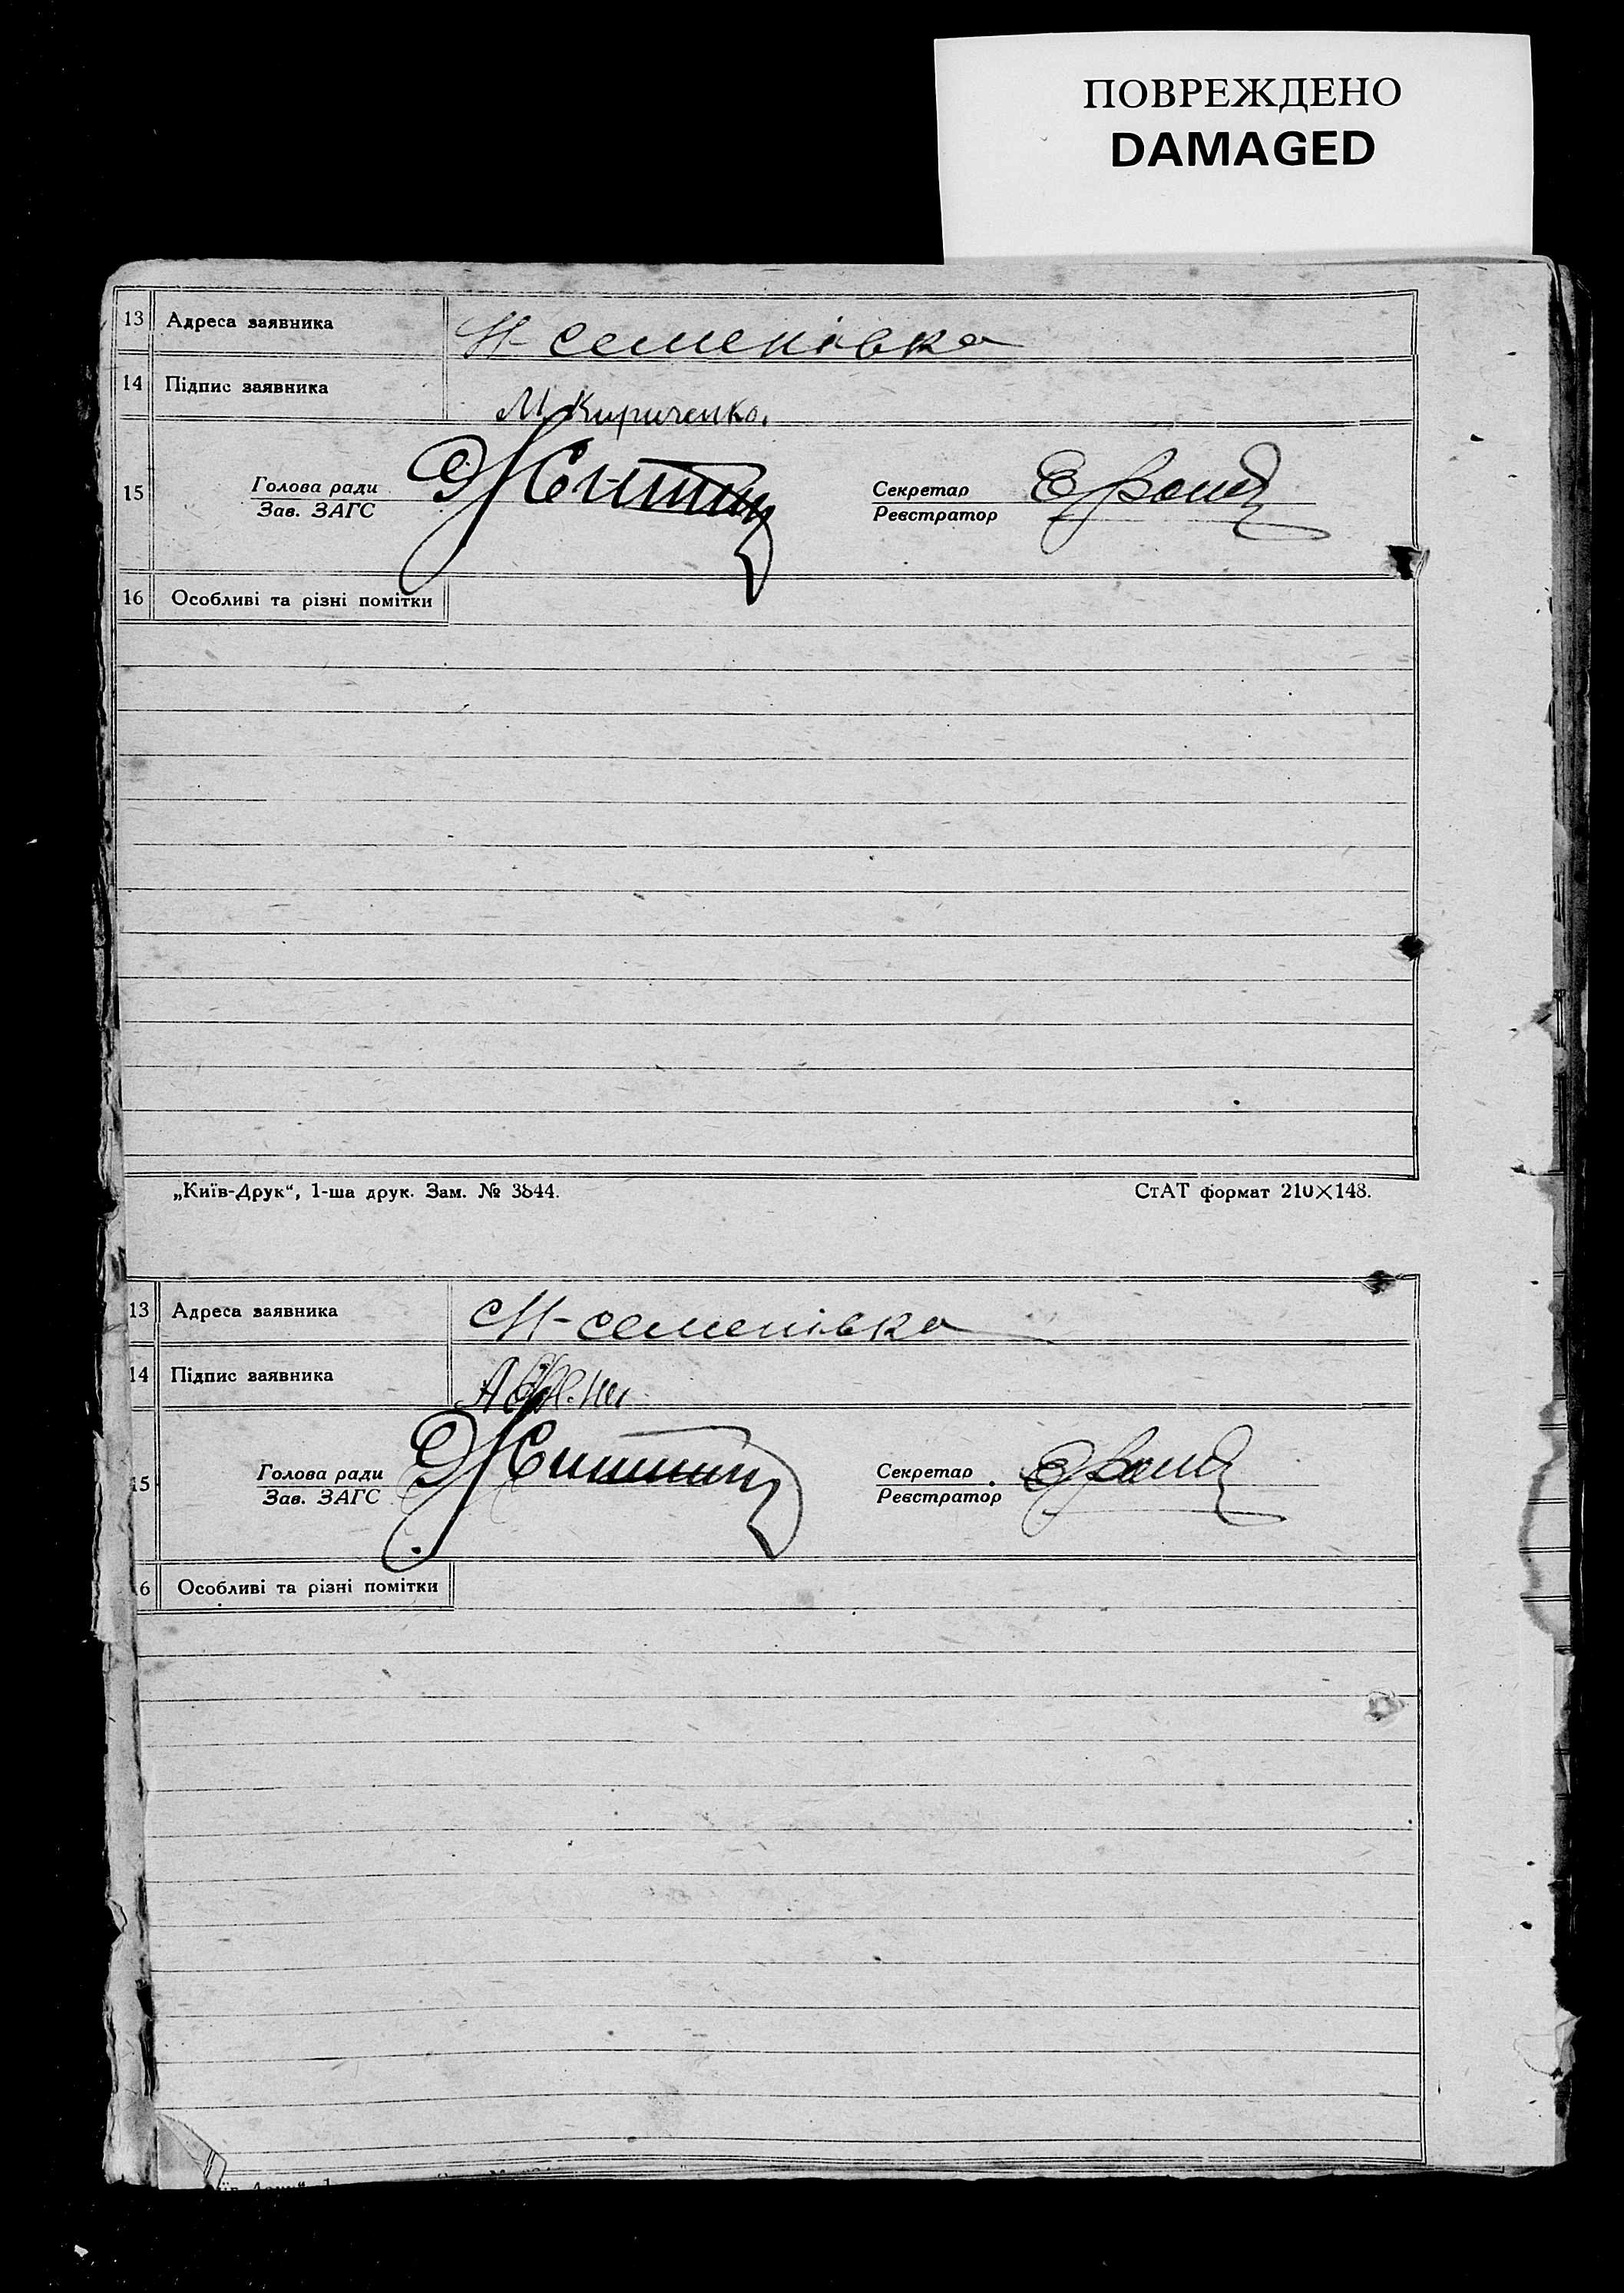 ПОВРЕЖДЕНО
DAMAGED
13 Адреса заявника Н-семенівка
14 Підпис заявника М Кириченко.
15 Голова ради
Зав. ЗАГС
Секретар
Реєстратор
16 Особливі та різні помітки
„Київ-Друк“, 1-ша друк. Зам. № 3844.
СтАТ формат 210×148.
13 Адреса заявника Н-семенівка
14 Підпис заявника
15 Голова ради
Зав. ЗАГС
Секретар
Реєстратор
6 Особливі та різні помітки